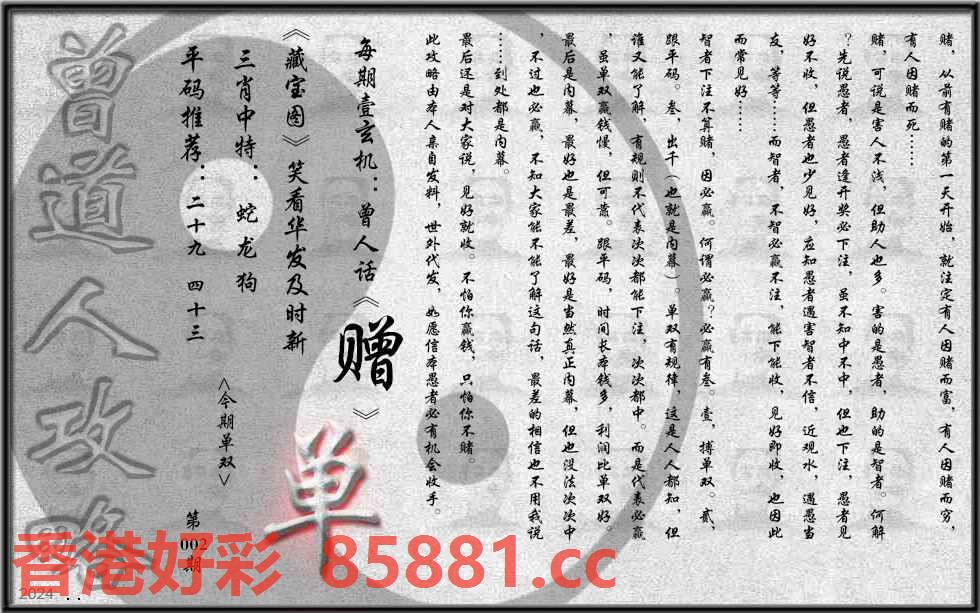 赌，从前有赌的第一天开始，就注定有人因赌而富，有人因赌而穷，
有人因赌而死……
赌，可说是害人不浅，但助人也多。害的是愚者，助的是智者。何解
？先说愚者，愚者逢开奖必下注，虽不知中不中，但也下注，愚者见
好不收，但愚者也少见好，应知愚者遇害智者不信，近观水，遇愚当
友，等等……而智者，不智必赢不注，能下能收，见好即收，也因此
而常见好……
智者下注不算赌，因必赢。何谓必赢？必赢有叁。壹，搏单双。贰，
跟平码。叁，出千（也就是内幕）。单双有规律，这是人人都知，但
谁又能了解，有规则不代表次次都能下注，次次都中。而是代表必赢
，虽单双赢钱慢，但可靠。跟平码，时间长本钱多，利润比单双好。
最后是内幕，最好也是最差，最好是当然真正内幕，但也没法次次中
，不过也必赢，不知大家能不能了解这句话，最差的相信也不用我说
……到处都是内幕。
最后还是对大家说，见好就收。不怕你赢钱，只怕你不赌。
此攻略由本人亲自发料，世外代发，如愿信本愚者必有机会收手。
每期壹玄机：曾人话《赠》
《藏宝图》笑看华发及时新
三肖中特：蛇龙狗
平码推荐：二十九 四十三
<今期单双>
单
第002期
曾道人攻略
香港好彩 85881.cc
2024